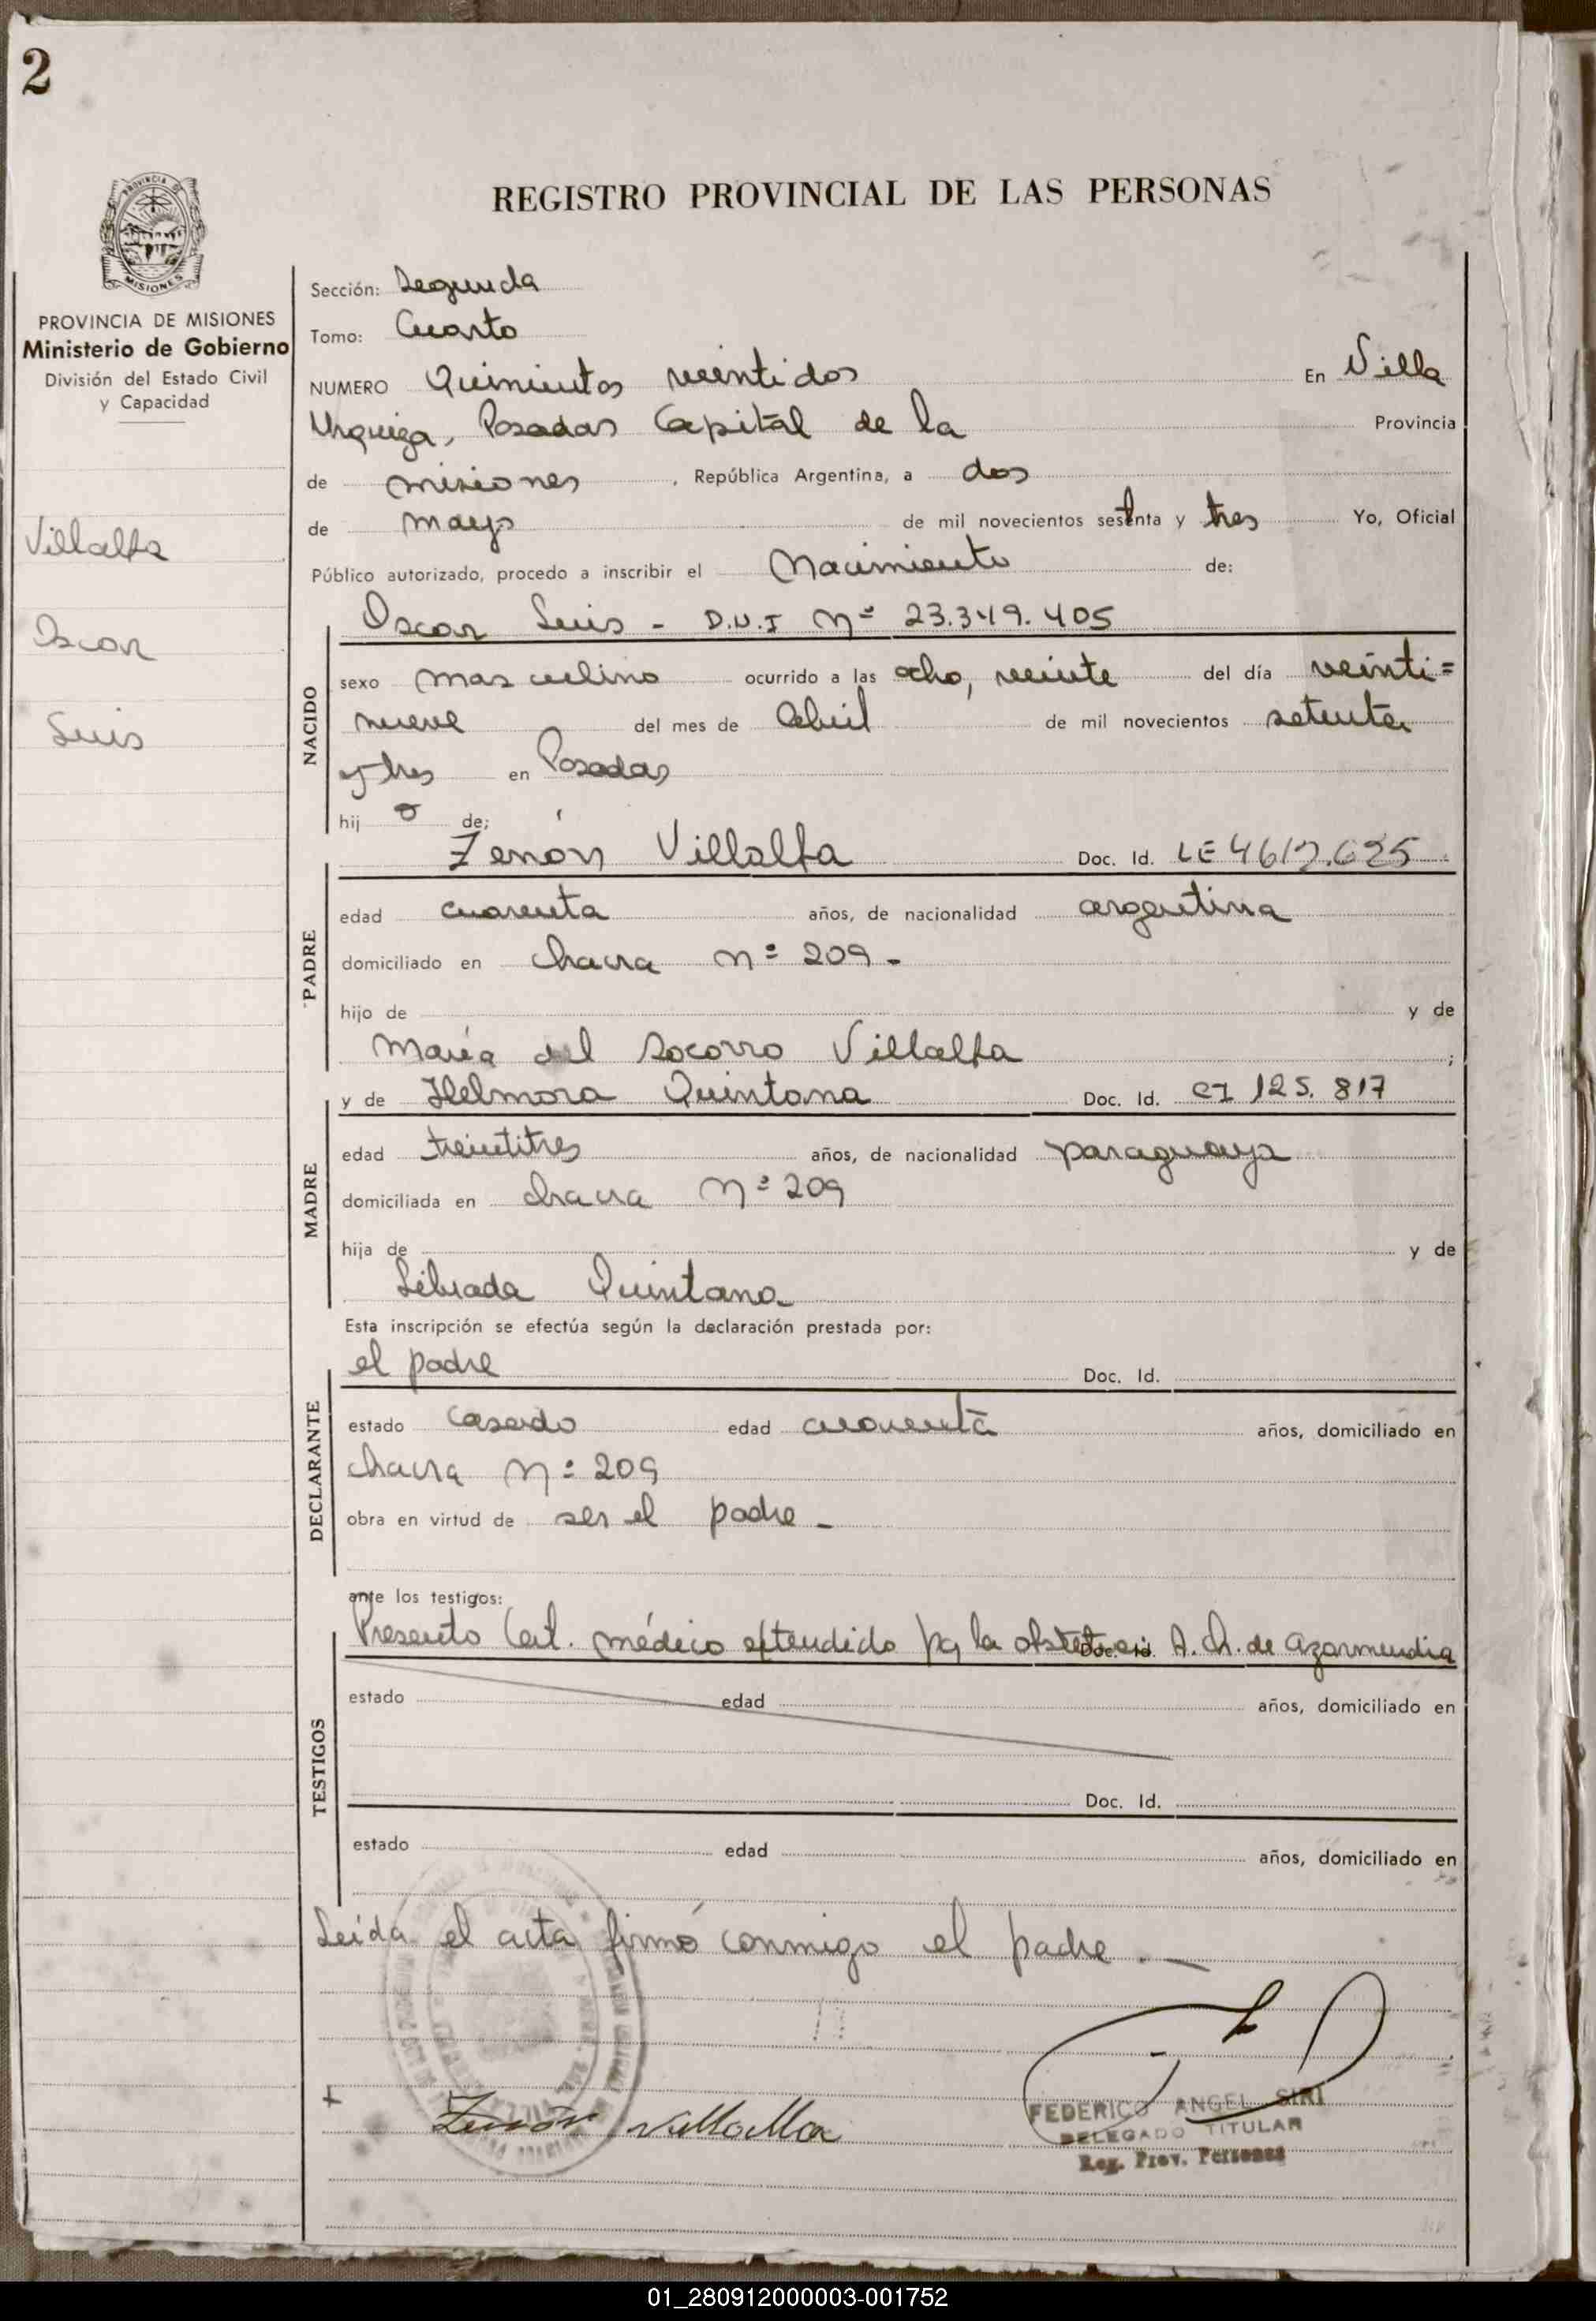 2
PROVINCIA DE MISIONES
MISIONES
PROVINCIA DE MISIONES
Ministerio de Gobierno
División del Estado Civil
y Capacidad
Villalba
Oscar
Luis
REGISTRO PROVINCIAL DE LAS PERSONAS
Sección: Segunda
Tomo: Cuarto
NUMERO Quinientos veintidos En Villa
Urquiza, Posadas Capital de la Provincia
de misiones, República Argentina, a dos
de mayo de mil novecientos setenta y tres Yo, Oficial
Público autorizado, procedo a inscribir el Nacimiento de:
Oscar Luis - D.N.I Nº 23.349.405
NACIDO
sexo masculino ocurrido a las ocho, veinte del día veinti=
nueve del mes de Abril de mil novecientos setenta
y tres en Posadas
hijo de;
Zenón Villalba Doc. Id. LE 4612.625
PADRE
edad cuarenta años, de nacionalidad argentina
domiciliado en chacra Nº 209 -
hijo de y de
María del Socorro Villalba ;
y de Helmora Quintana Doc. Id. CI 125.817
MADRE
edad treintitres años, de nacionalidad paraguaya
domiciliada en chacra Nº 209
hija de y de
Librada Quintana
Esta inscripción se efectúa según la declaración prestada por:
el padre Doc. Id.
DECLARANTE
estado casado edad cuarenta años, domiciliado en
chacra Nº 209
obra en virtud de ser el padre -
ante los testigos:
Presento Cert. médico extendido por la obstetra: A. Ch. de Azarmendia
Doc. Id.
TESTIGOS
estado edad años, domiciliado en
Doc. Id.
estado edad años, domiciliado en
Leída el acta firmó conmigo el padre. -
Zenón Villalba
FEDERICO ANGEL SIRI
DELEGADO TITULAR
Reg. Prov. Personas
01_280912000003-001752